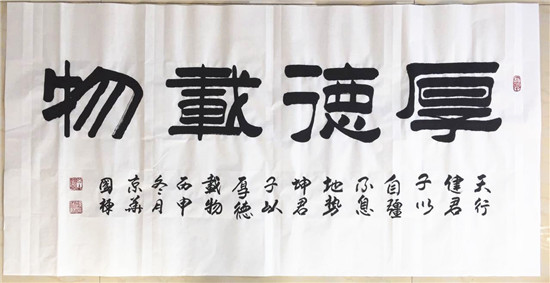 厚德載物
天行
健君
子以
自彊
不息
地勢
坤君
子以
厚德
載物
丙申
冬月
京華
國棟